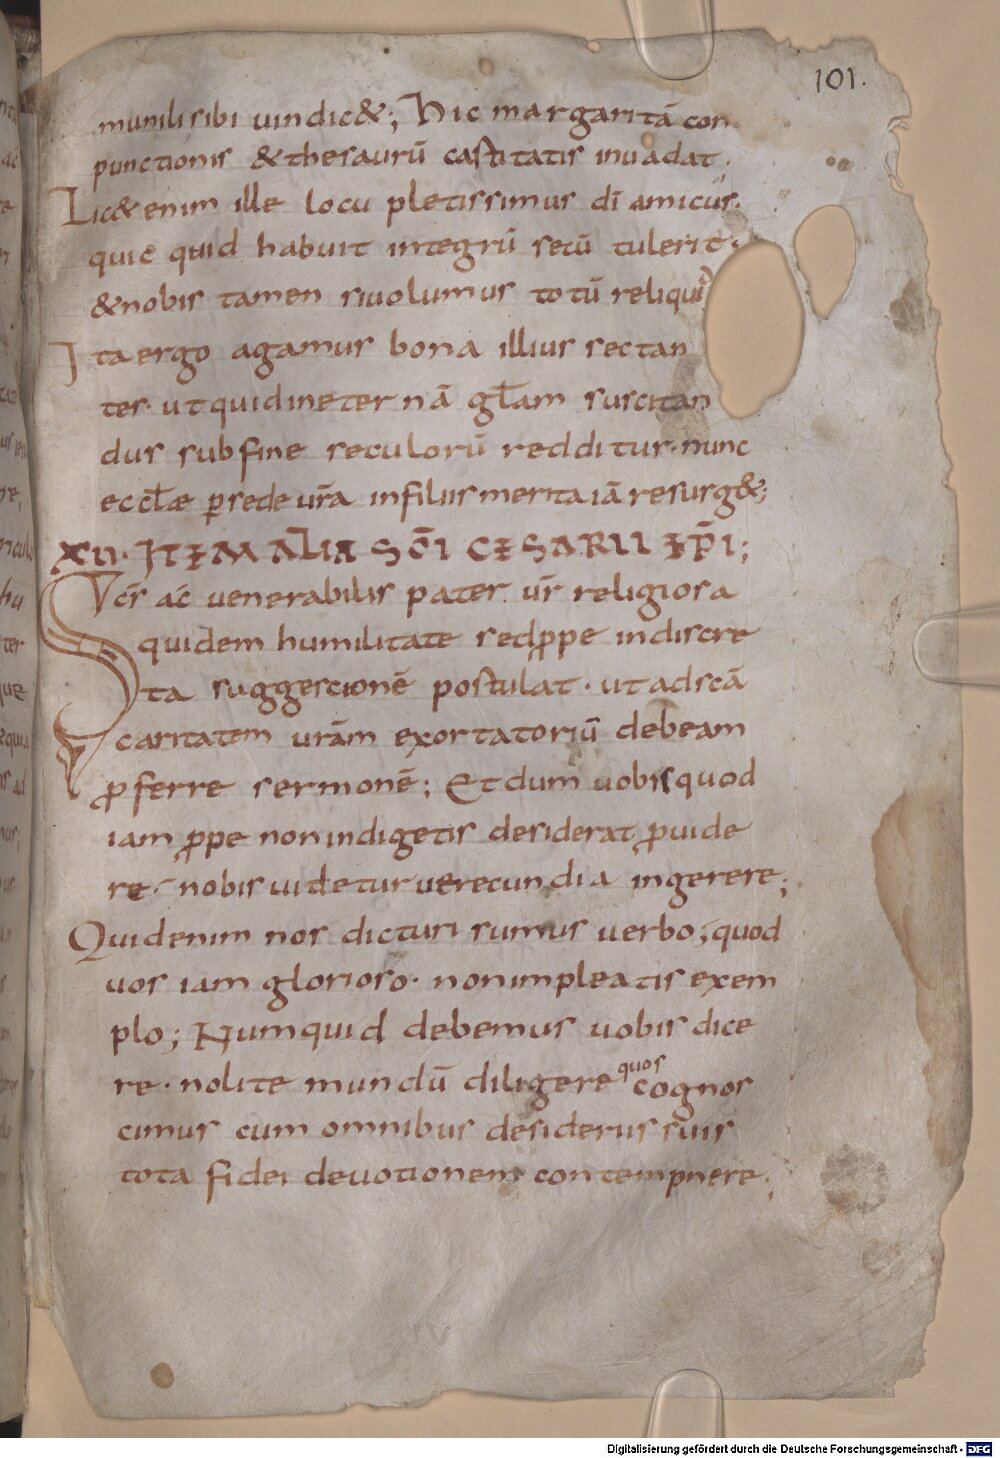 101.
munili sibi uindic&; Hic margaritā con
punctionis & thesaurū castitatis inuadat;
Lic& enim ille locu pletissimus dī amicus.
quic quid habuit integrū secū tulerit.
& nobis tamen si uolumus totū reliquid
Ita ergo agamus bona illius sectan
ter. ut quid in eternā gl̄am suscitan
dus sub fine seculorū redditur. nunc
eccl̄ae p̲sede ur̄a in filiis merita iā resurg&;
XII. ITEM ALIA SC̄I CESARII EP̄I;
Sc̄s ac̄ uenerabilis pater ur̄ religiosa
quidem humilitate sed ꝓpe indiscre
ta suggescionē postulat. ut ad sc̄ā
caritatem ur̄am exortatoriū debeam
ꝓferre sermonē; Et dum uobis quod
iam ꝓpe non indigetis desiderat ꝓuide
re. nobis uidetur uerecundia ingerere;
Quid enim nos dicturi sumus uerbo, quod
uos iam glorioso. non impleatis exem
plo; Numquid debemus uobis dice
re. nolite mundū diligere quos cognos
cimus cum omnibus desideriis suis
tota fidei deuotionem contempnere;
Digitalisierung gefördert durch die Deutsche Forschungsgemeinschaft - DFG